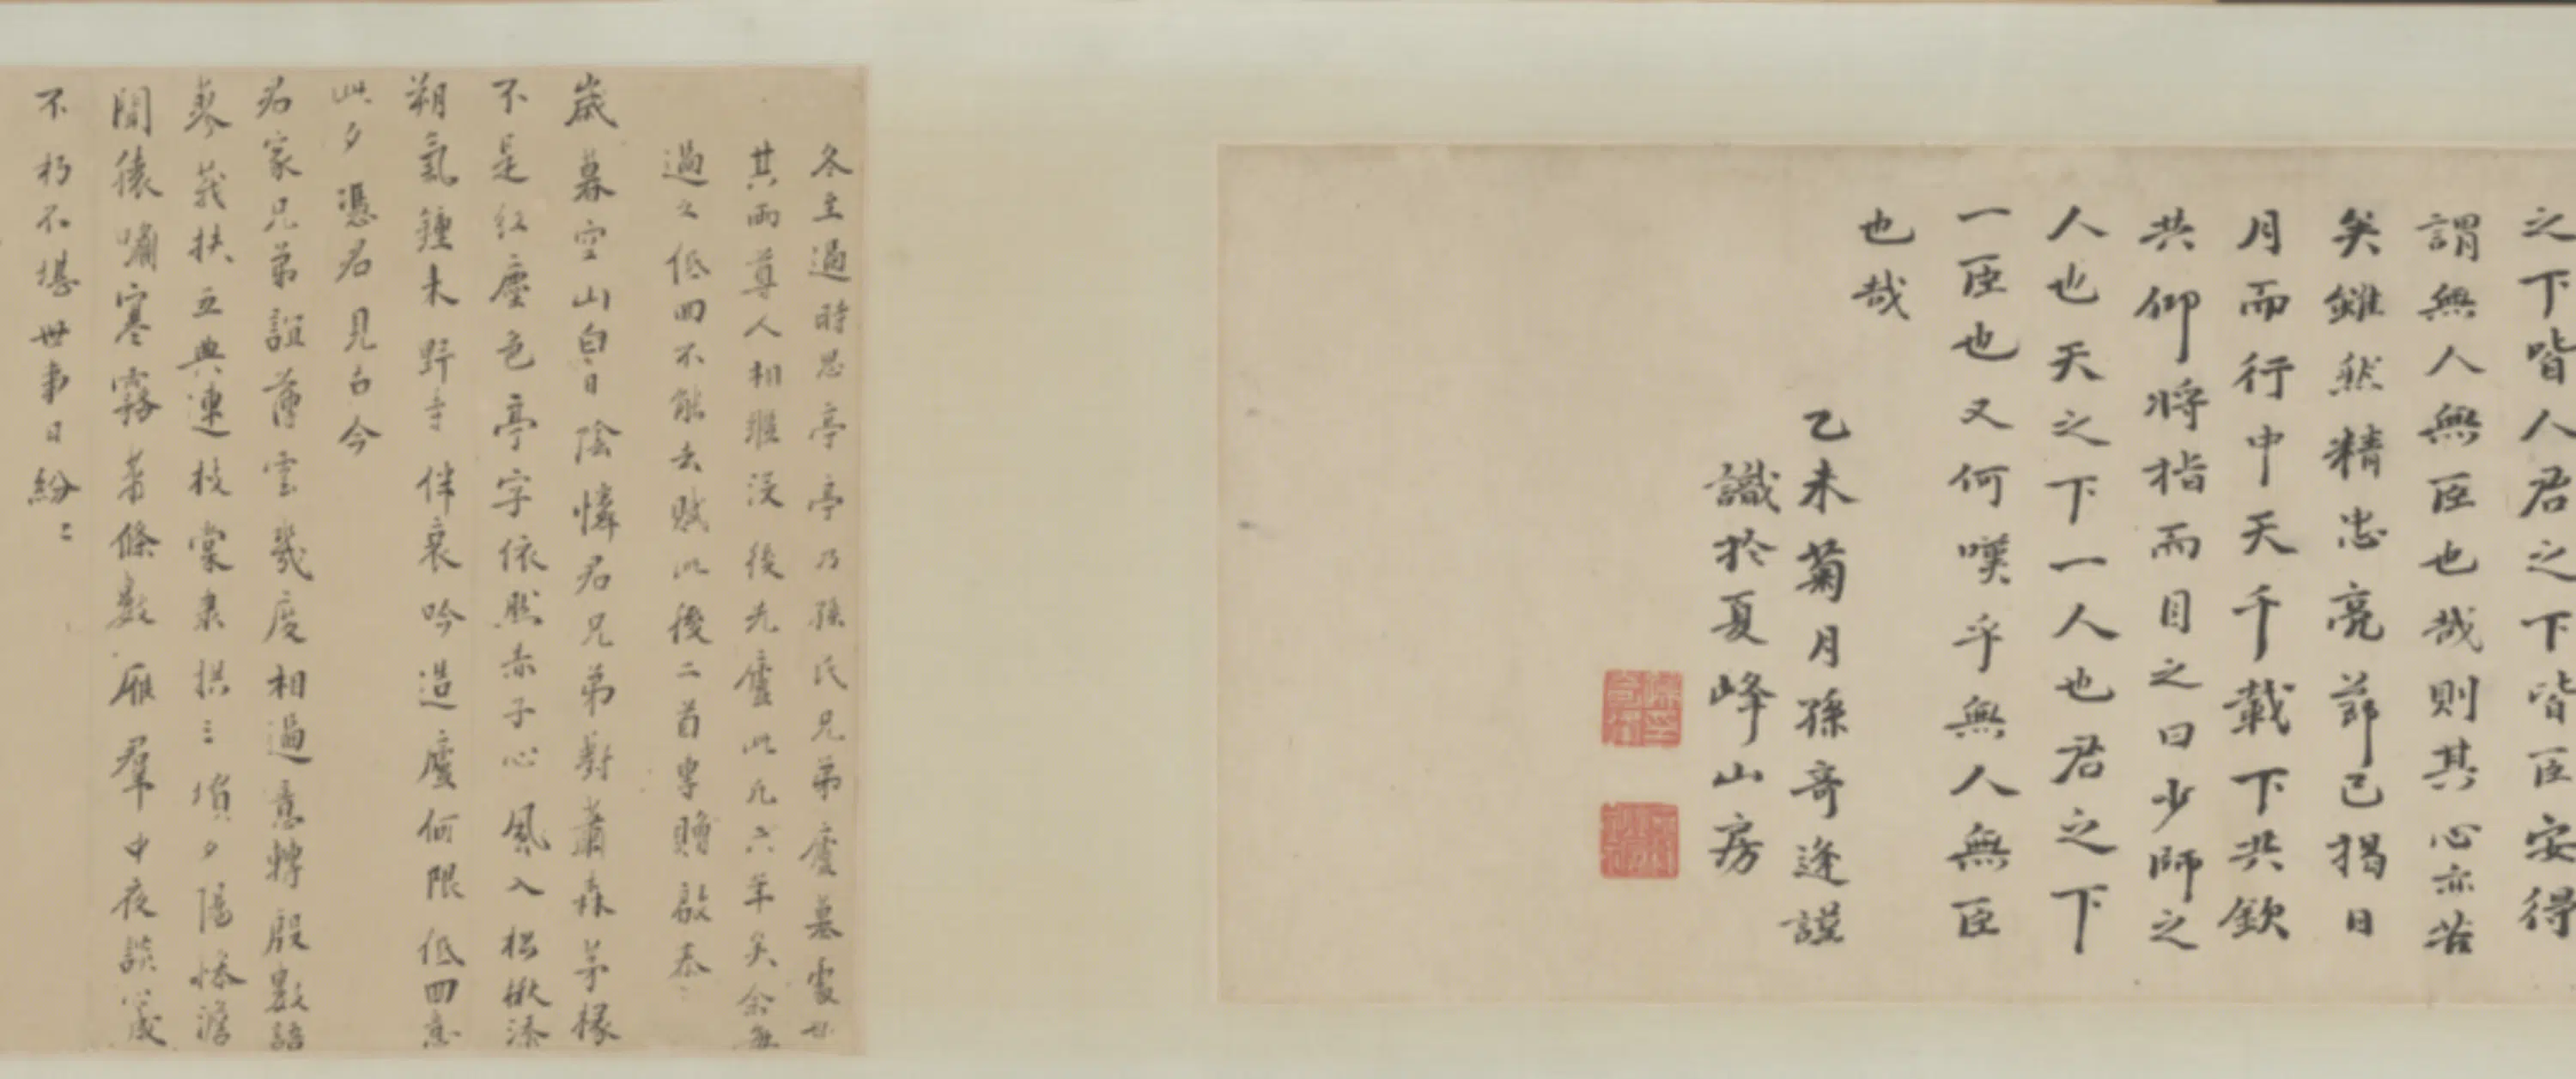 之下皆人君之下皆臣安得
謂無人無臣也哉則其心亦苦
矣雖然精忠亮節已揭日
月而行中天千載下共欽
共仰將指而目之曰少師之
人也天之下一人也君之下
一臣也又何嘆乎無人無臣
也哉
乙未菊月孫奇逢謹
識於夏峰山房
冬至過時思亭亭乃孫氏兄弟廬墓處也
其兩尊人相繼沒後先廬此凡六年矣余每
過之低回不能去賦此後二首專贈啟泰
歲暮空山白日陰憐君兄弟對蕭森茅椽
不是紅塵色亭字依然赤子心風入松楸添
朔氣鐘來野寺伴哀吟造廬何限低回意
此夕憑君見古今
君家兄弟誼薄雲幾度相過意轉殷數語
蓼莪扶立典連枝棠棣拱三墳夕陽慘澹
聞猿嘯寒霧蕭條數雁群中夜談
不朽不堪世事日紛〻